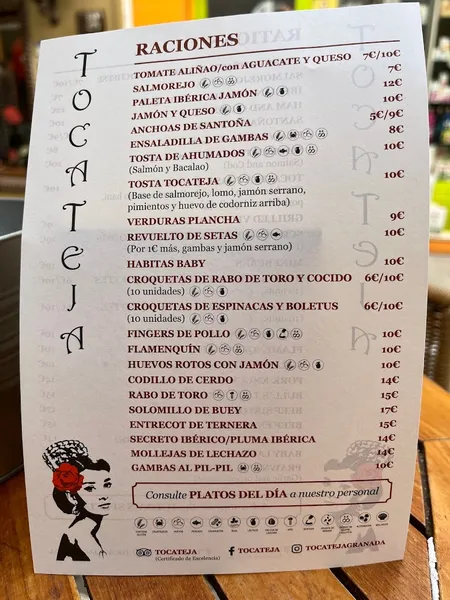 TOCATEJA
RACIONES
TOMATE ALIÑAO/con AGUACATE Y QUESO 7€/10€
SALMOREJO 7€
PALETA IBÉRICA JAMÓN 12€
JAMÓN Y QUESO 10€
ANCHOAS DE SANTOÑA 5€/9€
ENSALADILLA DE GAMBAS 8€
TOSTA DE AHUMADOS 10€
(Salmón y Bacalao)
TOSTA TOCATEJA 10€
(Base de salmorejo, lomo, jamón serrano,
pimientos y huevo de codorniz arriba)
VERDURAS PLANCHA 9€
REVUELTO DE SETAS 10€
(Por 1€ más, gambas y jamón serrano)
HABITAS BABY 10€
CROQUETAS DE RABO DE TORO Y COCIDO 6€/10€
(10 unidades)
CROQUETAS DE ESPINACAS Y BOLETUS 6€/10€
(10 unidades)
FINGERS DE POLLO 10€
FLAMENQUÍN 10€
HUEVOS ROTOS CON JAMÓN 10€
CODILLO DE CERDO 14€
RABO DE TORO 15€
SOLOMILLO DE BUEY 17€
ENTRECOT DE TERNERA 15€
SECRETO IBÉRICO/PLUMA IBÉRICA 14€
MOLLEJAS DE LECHAZO 14€
GAMBAS AL PIL-PIL 10€
Consulte PLATOS DEL DÍA a nuestro personal
TOCATEJA
(Certificado de Excelencia)
TOCATEJA
TOCATEJAGRANADA